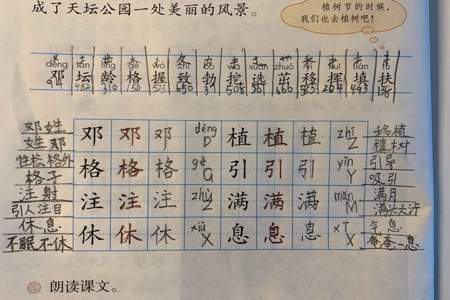 植树节的时候，
我们也去植树吧！
成了天坛公园一处美丽的风景。
dèng tán líng gé wò zhì bó wā xuǎn zhuó yí huī tián fú
邓 坛 龄 格 握 致 勃 挖 选 茁 移 挥 填 扶
邓姓 邓 邓 邓 dèng D 植 植 植 zhí Z 移植
姓邓 植树
性格 格外 格 格 格 gé G 引 引 引 yǐn Y 引导
格子 吸引
注射 注 注 注 zhù Z 满 满 满 mǎn M 满月
引人注目 满头大汗
休息 休 休 休 xiū X 息 息 息 xī X
不眠不休 奄奄一息
朗读课文。